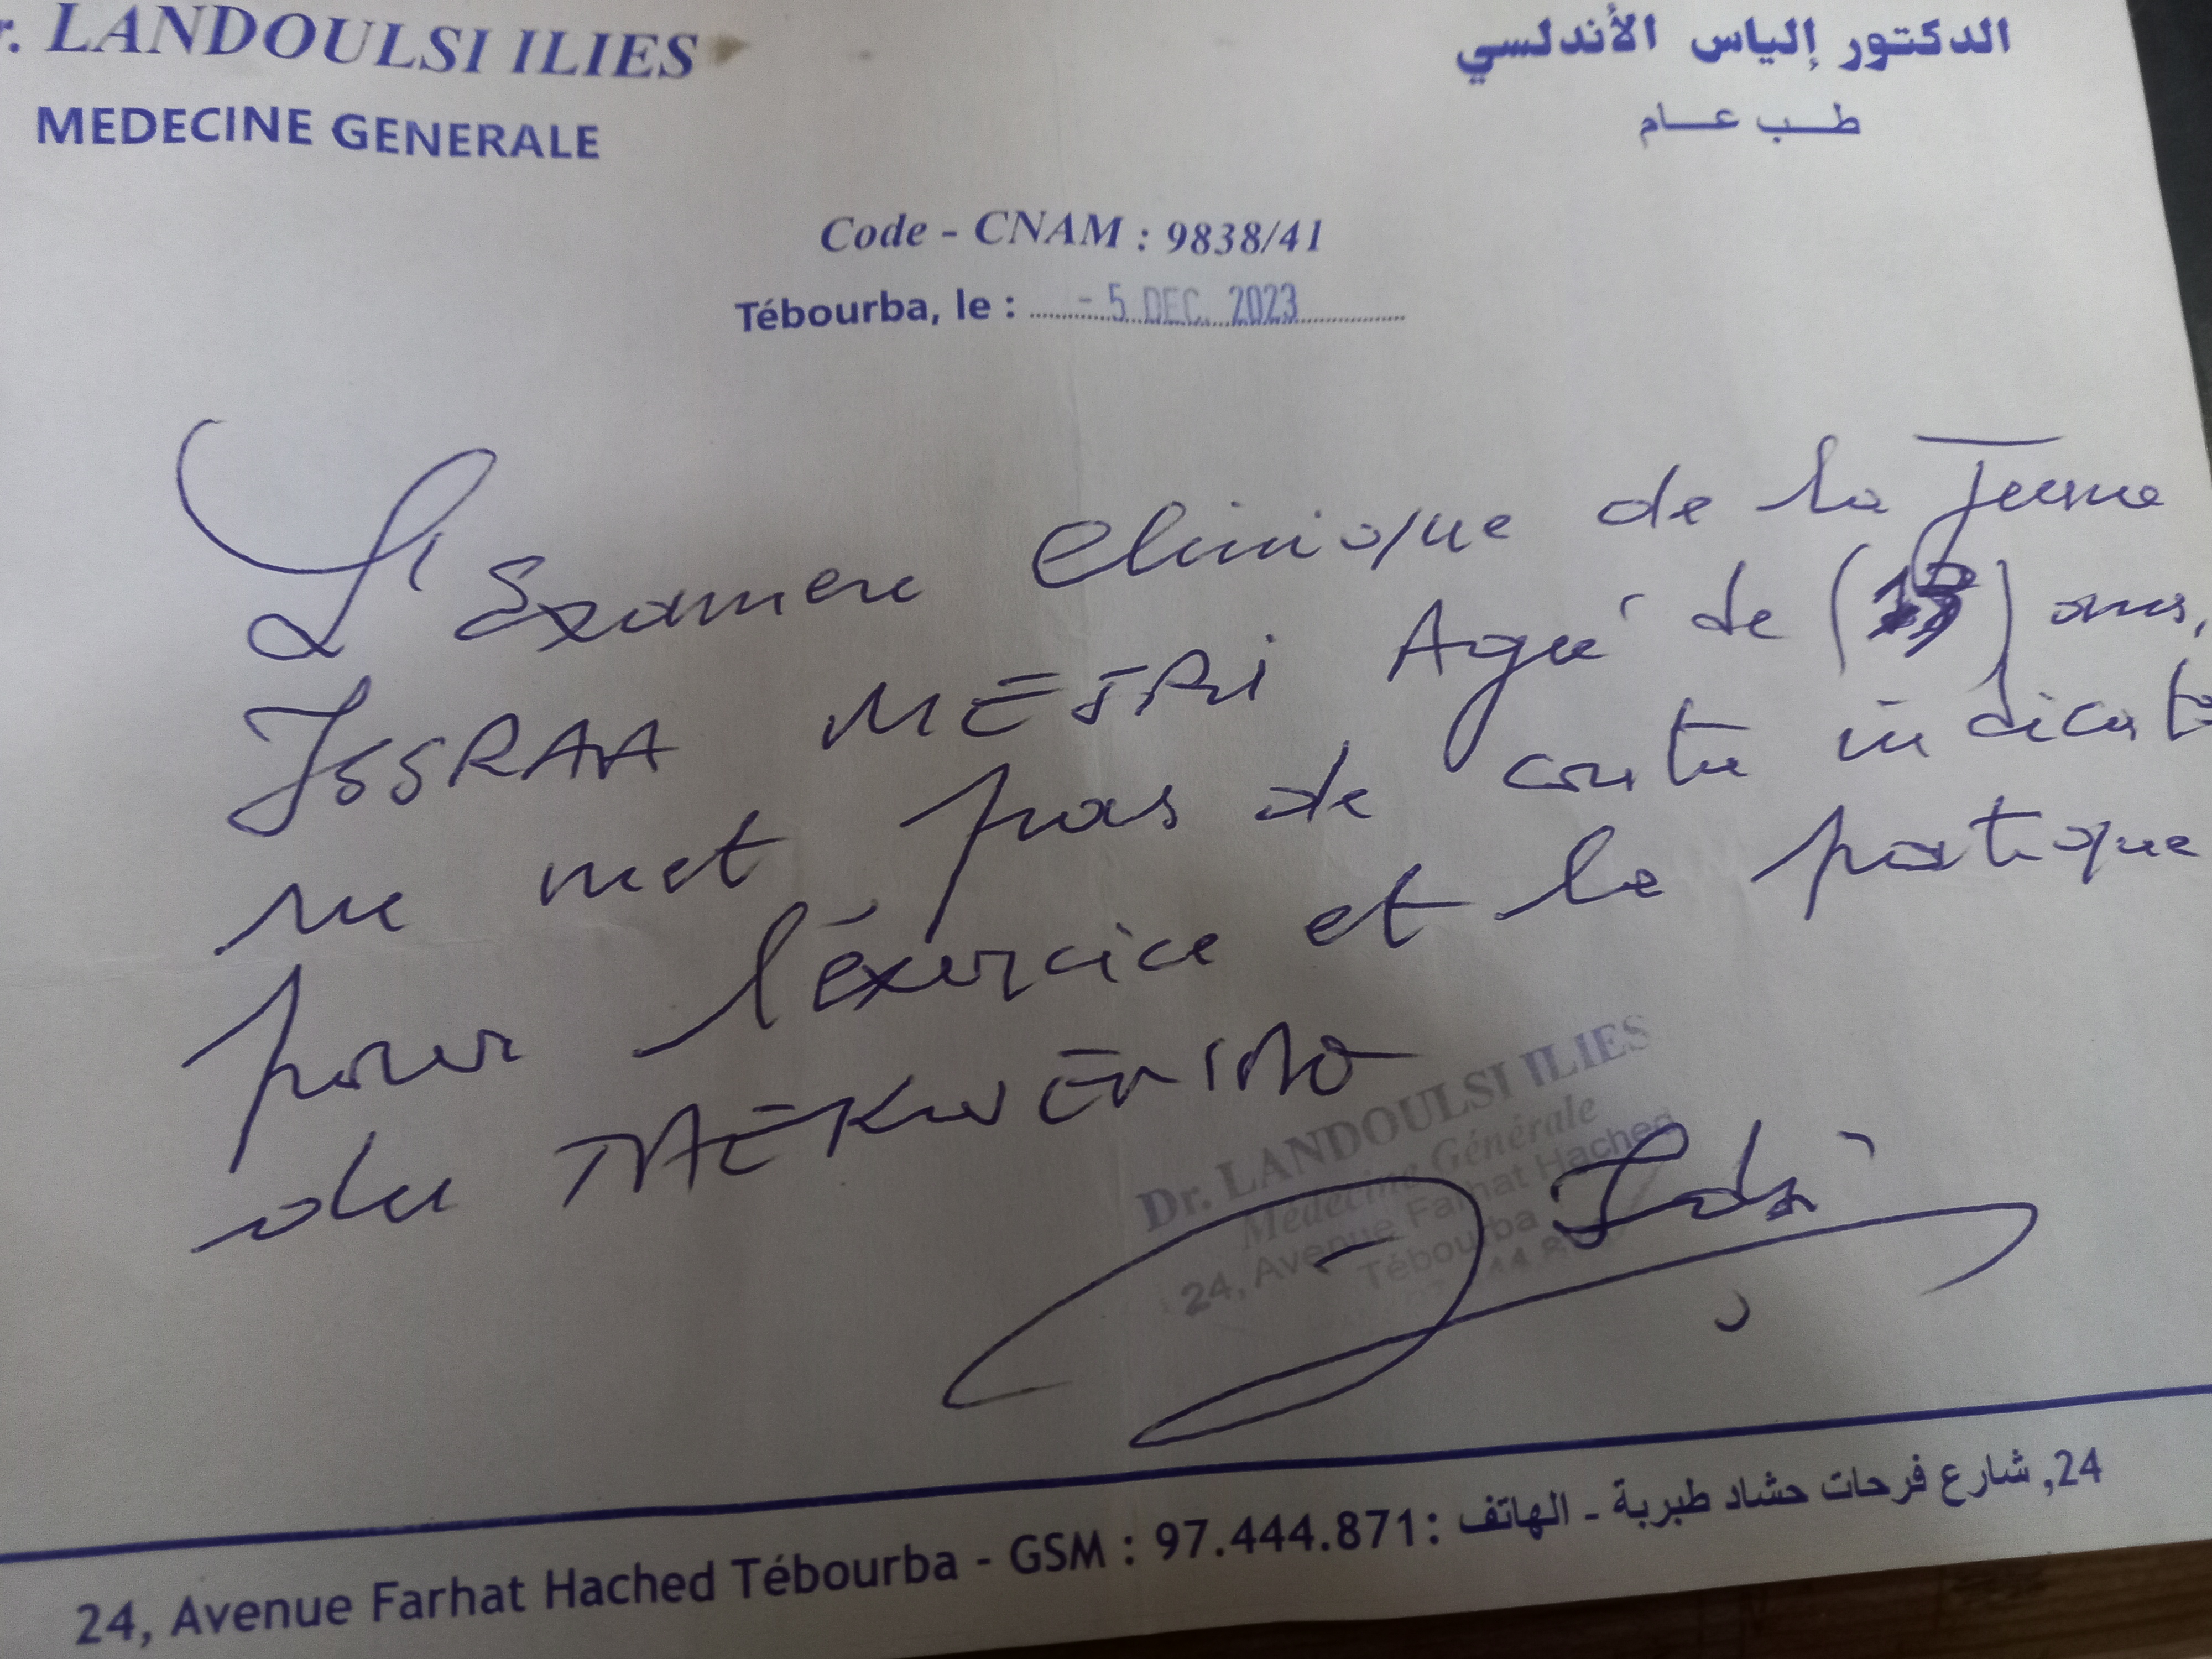 r. LANDOULSI ILIES
MEDECINE GENERALE
الدكتور إلياس الأندلسي
طب عام
Code - CNAM : 9838/41
Tébourba, le : - 5 DEC. 2023
L'Examen Clinique de la Jeune
ISSRAA MEJRI Agée de ( ) ans,
ne met pas de contre indicat
pour l'éxercice et la pratique
du TAEKWENDO
Dr. LANDOULSI ILIES
Médecine Générale
24, Avenue Farhat Hached
Tébourba
24, شارع فرحات حشاد طبربة - الهاتف :
24, Avenue Farhat Hached Tébourba - GSM : 97.444.871